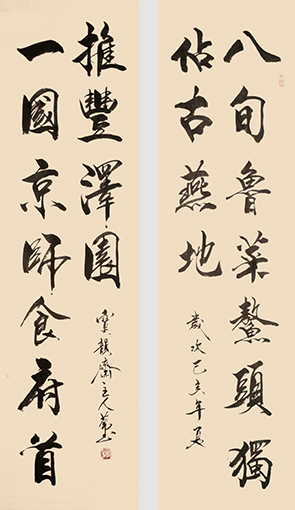 八旬魯菜鰲頭獨
佔古燕地
歲次己亥年夏
一國京師食府首
推豐澤園
寶韻齋主人